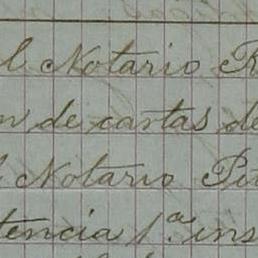 l Notario R
n de cartas de
l Notario Pi
tencia 1.ª ins